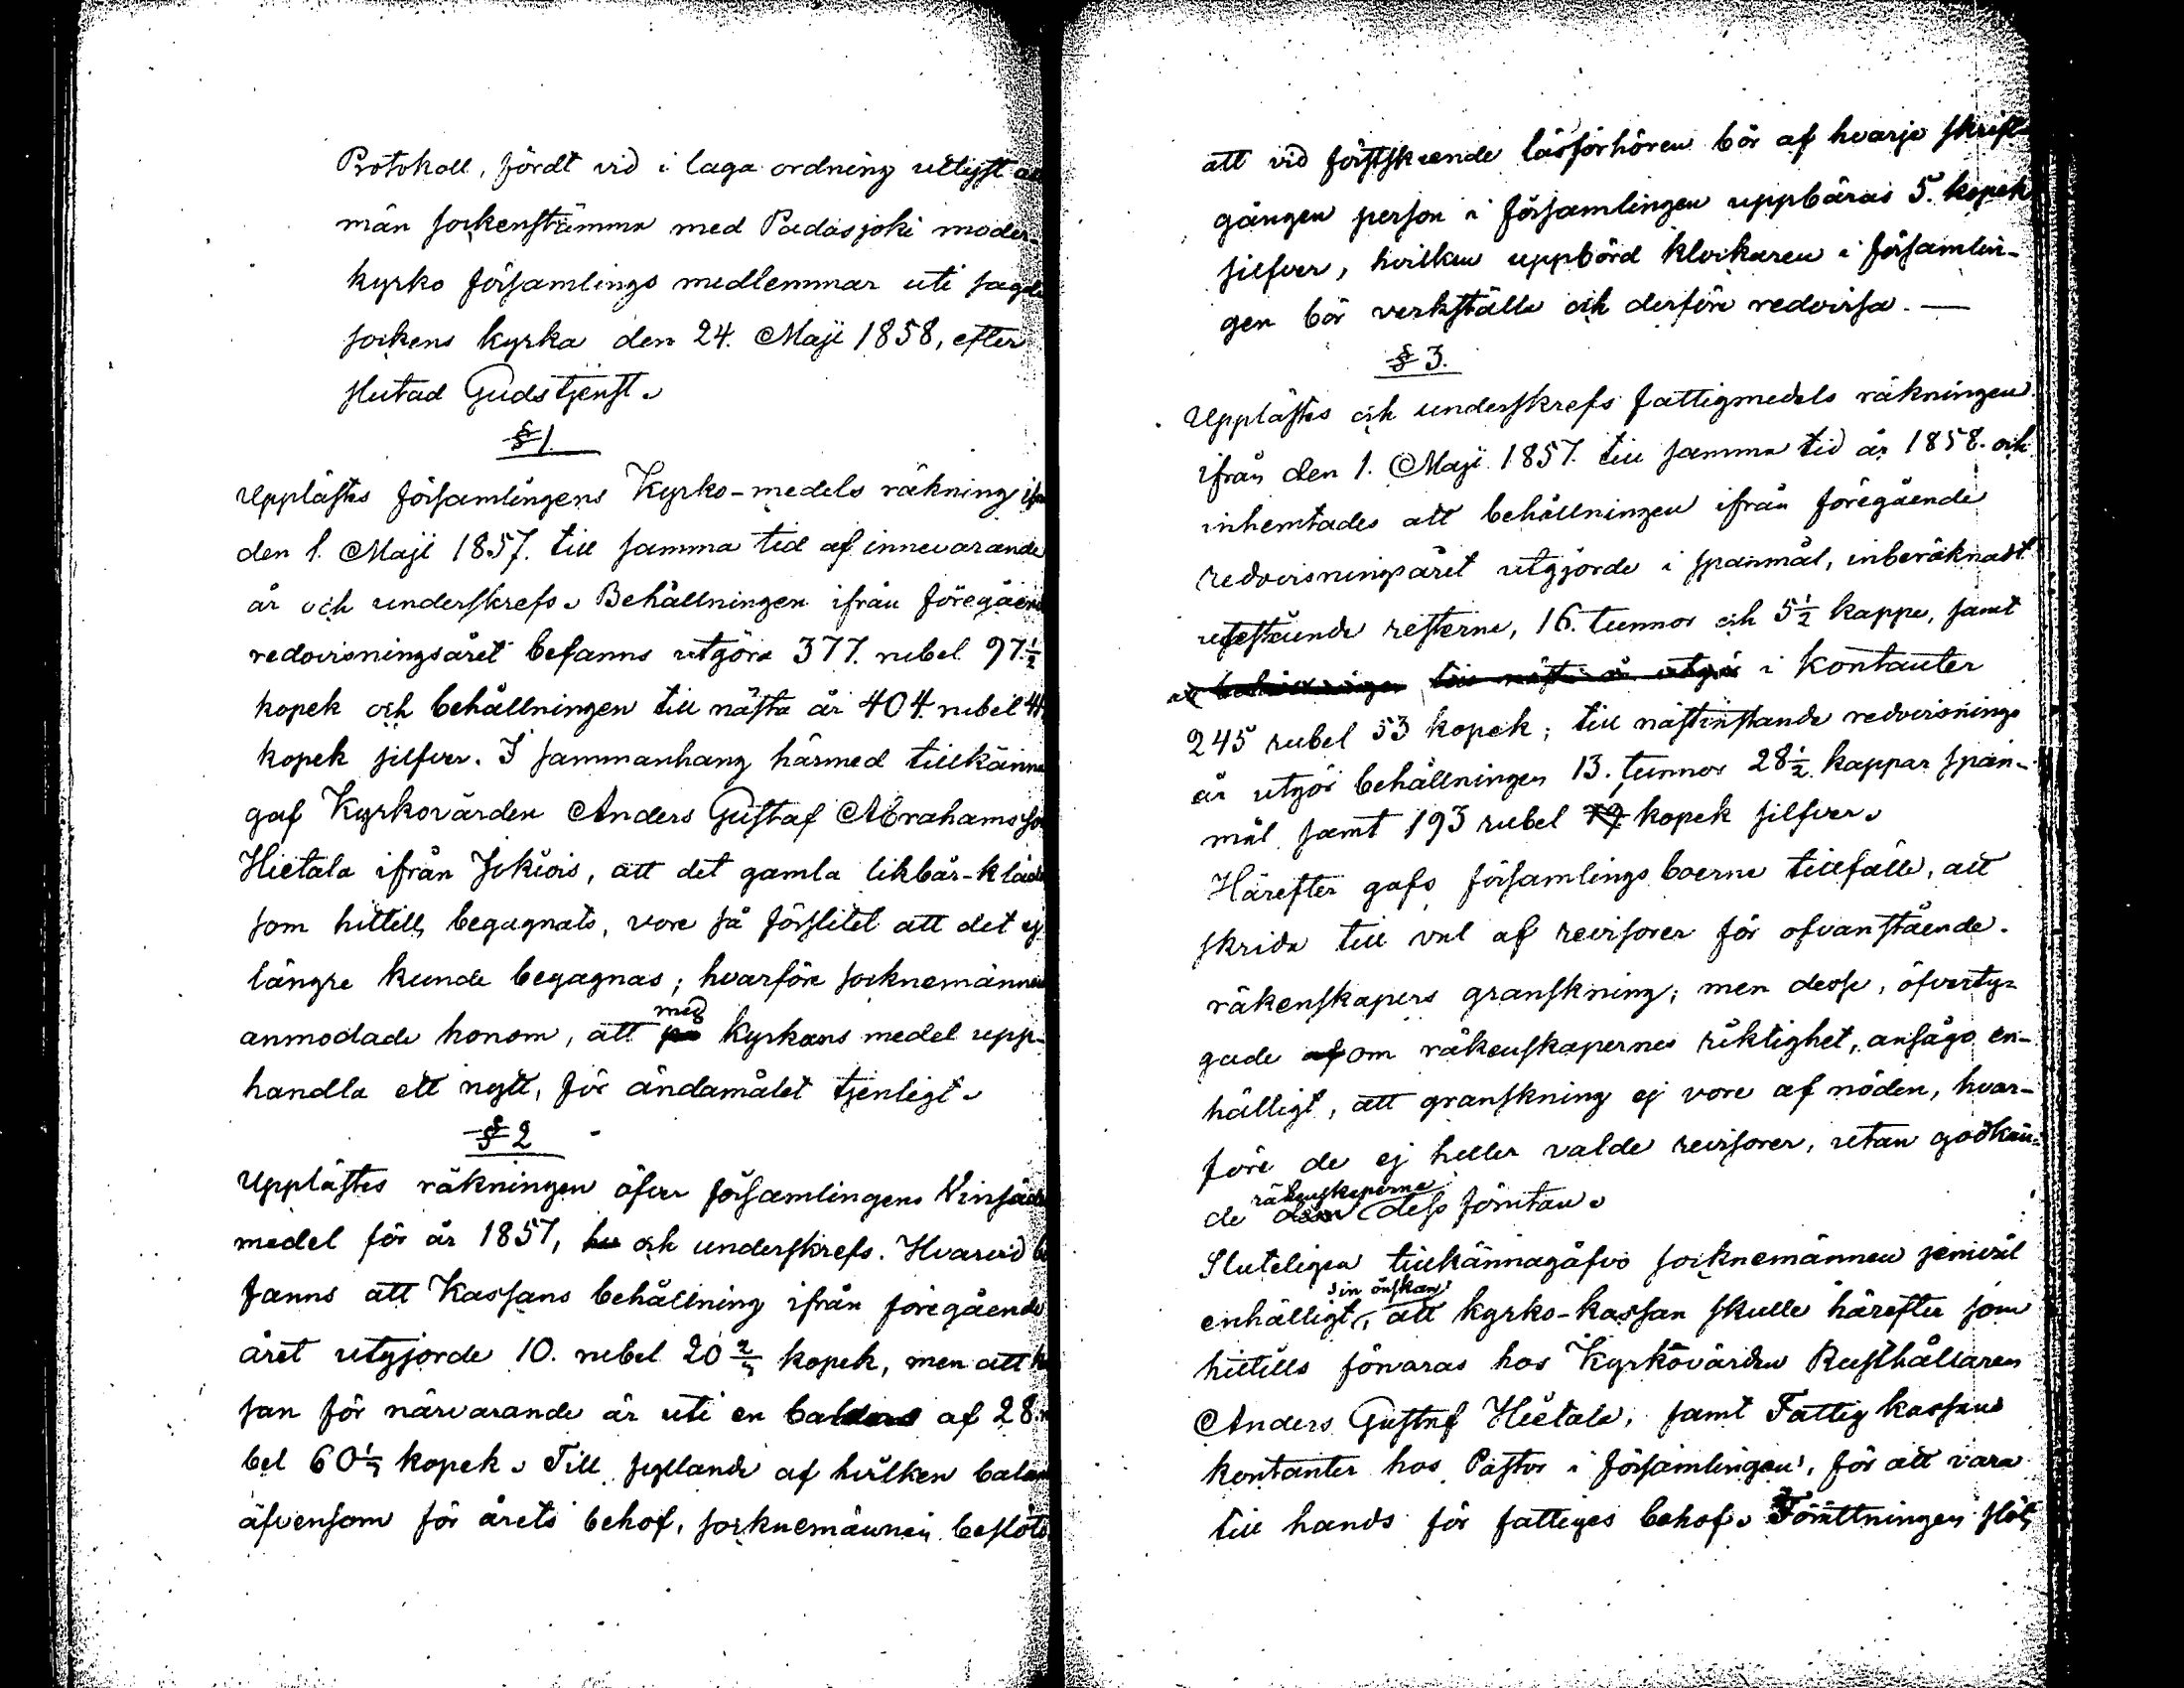 Protokoll, fördt vid i laga ordning utlyst all
män sockenstämma med Padasjoki moder-
kyrko församlings medlemmar uti sagde
sockens kyrka den 24. Maji 1858, efter
slutad Gudstjenst.
§ 1.
Upplästes församlingens Kyrko-medels räkning ifrån
den 1. Maji 1857. till samma tid af innevarande
år och underskrefs. Behållningen ifrån föregående
redovisningsåret befanns utgöra 377. rubel 97.½
kopek och behållningen till nästa år 404. rubel 44
kopek silfver. I sammanhang härmed tillkänna
gaf Kyrkovärden Anders Gustaf Abrahamsson
Hietala ifrån Jokiois, att det gamla likbår-kläde
som hittills begagnats, vore så förslitet att det ej
längre kunde begagnas; hvarföre socknemännen
anmodade honom, att med Kyrkans medel upp-
handla ett nytt, för ändamålet tjenligt.
§ 2
Upplästes räkningen öfver församlingens Vinsäds
medel för år 1857, och underskrefs. Hvarvid be
fanns att Kassans behållning ifrån föregående
året utgjorde 10. rubel 20 2/7 kopek, men att kas
san för närvarande är uti en balans af 28. ru
bel 60 1/7 kopek. Till fyllande af hvilken balans
äfvensom för årets behof, socknemännen beslöto
att vid förstskeende läsförhören bör af hvarje skrift-
gången person i församlingen uppbäras 5. kopek
silfver, hvilken uppbörd klockaren i församlin-
gen bör verkställa och derföre redovisa. —
§ 3.
Upplästes och underskrefs fattigmedels räkningen
ifrån den 1. Maji 1857. till samma tid år 1858. och
inhemtades att behållningen ifrån föregående
redovisningsåret utgjorde i spanmål, inberäknadt
utestående resterne, 16. tunnor och 5½ kappe, samt
i kontanter
245 rubel 53 kopek; till nästinstande redovisnings
år utgör behållningen 13. tunnor 28½ kappar span-
mål samt 193 rubel 19 kopek silfver.
Härefter gafs församlings boerne tillfälle, att
skrida till val af revisorer för ofvanstående
räkenskapers granskning; men desse, öfverty-
gade om räkenskapernes riktighet, ansågo en-
hälligt, att granskning ej vore af nöden, hvar-
före de ej heller valde revisorer, utan godkän-
de räkenskaperne dess förutan.
Sluteligen tillkännagåfvo socknemännen jemväl
enhälligt sin önskan, att kyrko-kassan skulle härefter som
hittills förvaras hos Kyrkovärden Rusthållaren
Anders Gustaf Hietala, samt Fattig kassans
kontanter hos Pastor i församlingen, för att vara
till hands för fattiges behof. Förrättningen slöts